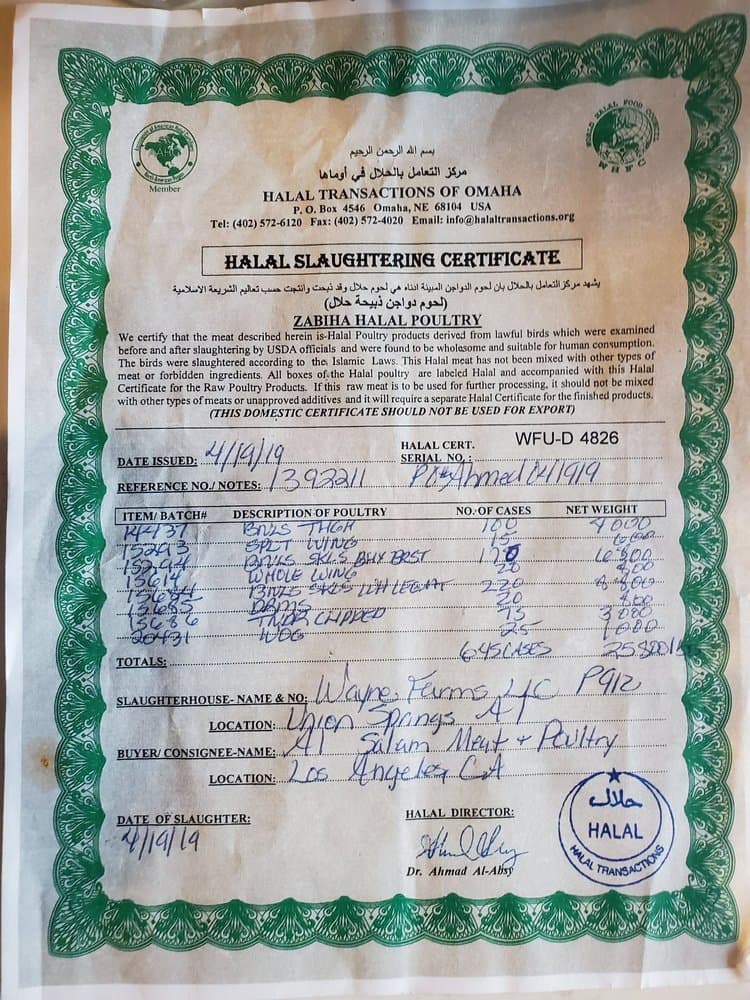 بسم الله الرحمن الرحيم
مركز التعامل بالحلال في أوماها
HALAL TRANSACTIONS OF OMAHA
P. O. Box 4546 Omaha, NE 68104 USA
Tel: (402) 572-6120 Fax: (402) 572-4020 Email: info@halaltransactions.org
Member
WORLD HALAL FOOD COUNCIL
WHFC
HALAL SLAUGHTERING CERTIFICATE
يشهد مركز التعامل بالحلال بان لحوم الدواجن المبينة ادناه هي لحوم حلال وقد ذبحت وانتجت حسب تعاليم الشريعة الاسلامية
(لحوم دواجن ذبيحة حلال)
ZABIHA HALAL POULTRY
We certify that the meat described herein is-Halal Poultry products derived from lawful birds which were examined
before and after slaughtering by USDA officials and were found to be wholesome and suitable for human consumption.
The birds were slaughtered according to the Islamic Laws. This Halal meat has not been mixed with other types of
meat or forbidden ingredients. All boxes of the Halal poultry are labeled Halal and accompanied with this Halal
Certificate for the Raw Poultry Products. If this raw meat is to be used for further processing, it should not be mixed
with other types of meats or unapproved additives and it will require a separate Halal Certificate for the finished products.
(THIS DOMESTIC CERTIFICATE SHOULD NOT BE USED FOR EXPORT)
DATE ISSUED: 4/19/19
HALAL CERT. WFU-D 4826
SERIAL NO.:
REFERENCE NO./ NOTES: 1393211 Ahmed 041919
ITEM/ BATCH# DESCRIPTION OF POULTRY NO. OF CASES NET WEIGHT
14437 BNLS THGH 100 4000
15293 SPLT WING 15 600
15294 BNLS SKLS BRST 6800
15614 WHOLE WING 20 800
BNLS SKLS LEG 220 8800
15685 DRMS 20 800
15686 CLIPPED 75 3000
20431 WOG 25 1000
TOTALS: 645 CASES 25800
SLAUGHTERHOUSE- NAME & NO: Wayne Farms LLC P912
LOCATION: Union Springs Al
BUYER/ CONSIGNEE-NAME: Al Salam Meat + Poultry
LOCATION: Los Angeles, CA
DATE OF SLAUGHTER:
4/19/19
HALAL DIRECTOR:
Dr. Ahmad Al-Absy
حلال
HALAL
HALAL TRANSACTIONS